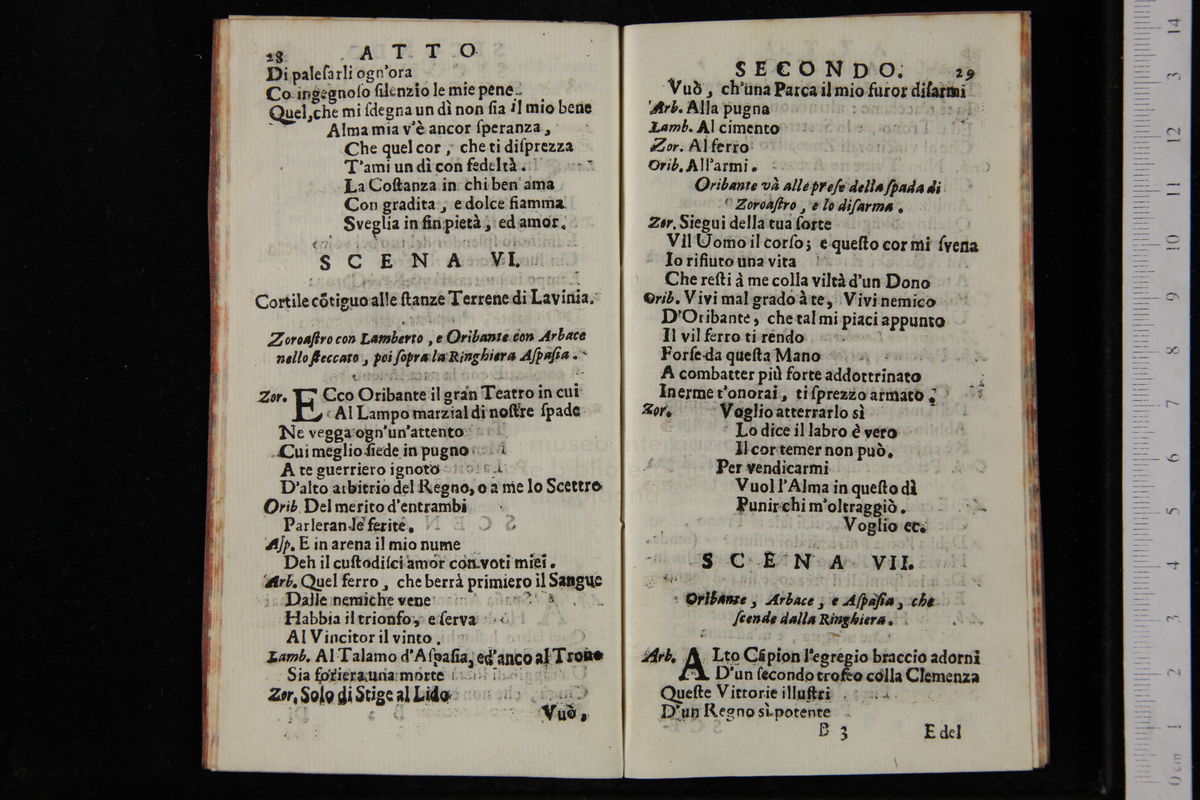 28 ATTO
Di paleſarli ogn'ora
Co ingegnoſo ſilenzio le mie pene
Quel, che mi ſdegna un dì non ſia il mio bene
Alma mia v'è ancor ſperanza,
Che quel cor, che ti diſprezza
T'ami un dì con fedeltà.
La Coſtanza in chi ben ama
Con gradita, e dolce fiamma
Sveglia in ſin pietà, ed amor.
SCENA VI.
Cortile cōtiguo alle ſtanze Terrene di Lavinia.
Zoroaſtro con Lamberto, e Oribante con Arbace
nello ſteccato, poi ſopra la Ringhiera Aſpaſia.
Zor. ECco Oribante il gran Teatro in cui
Al Lampo marzial di noſtre ſpade
Ne vegga ogn'un'attento
Cui meglio ſiede in pugno
A te guerriero ignoto
D'alto arbitrio del Regno, o a me lo Scettro
Orib. Del merito d'entrambi
Parleran le ferite.
Aſp. E in arena il mio nume
Deh il cuſtodiſci amor con voti miei.
Arb. Quel ferro, che berrà primiero il Sangue
Dalle nemiche vene
Habbia il trionfo, e ſerva
Al Vincitor il vinto.
Lamb. Al Talamo d'Aſpaſia, ed'anco al Trono
Sia foriera una morte
Zor. Solo di Stige al Lido
Vuò,
SECONDO. 29
Vuò, ch'una Parca il mio furor diſarmi
Arb. Alla pugna
Lamb. Al cimento
Zor. Al ferro
Orib. All'armi.
Oribante và alle preſe della ſpada di
Zoroaſtro, e lo diſarma.
Zor. Siegui della tua ſorte
Vil Uomo il corſo; e queſto cor mi ſvena
Io rifiuto una vita
Che reſti à me colla viltà d'un Dono
Orib. Vivi mal grado à te, Vivi nemico
D'Oribante, che tal mi piaci appunto
Il vil ferro ti rendo
Forſe da queſta Mano
A combatter più forte addottrinato
Inerme t'onorai, ti ſprezzo armato.
Zor. Voglio atterrarlo sì
Lo dice il labro è vero
Il cor temer non può.
Per vendicarmi
Vuol l'Alma in queſto dì
Punir chi m'oltraggiò.
Voglio ec.
SCENA VII.
Oribante, Arbace, e Aſpaſia, che
ſcende dalla Ringhiera.
Arb. ALto Cāpion l'egregio braccio adorni
D'un ſecondo trofeo colla Clemenza
Queſte Vittorie illuſtri
D'un Regno sì potente
B 3 E del